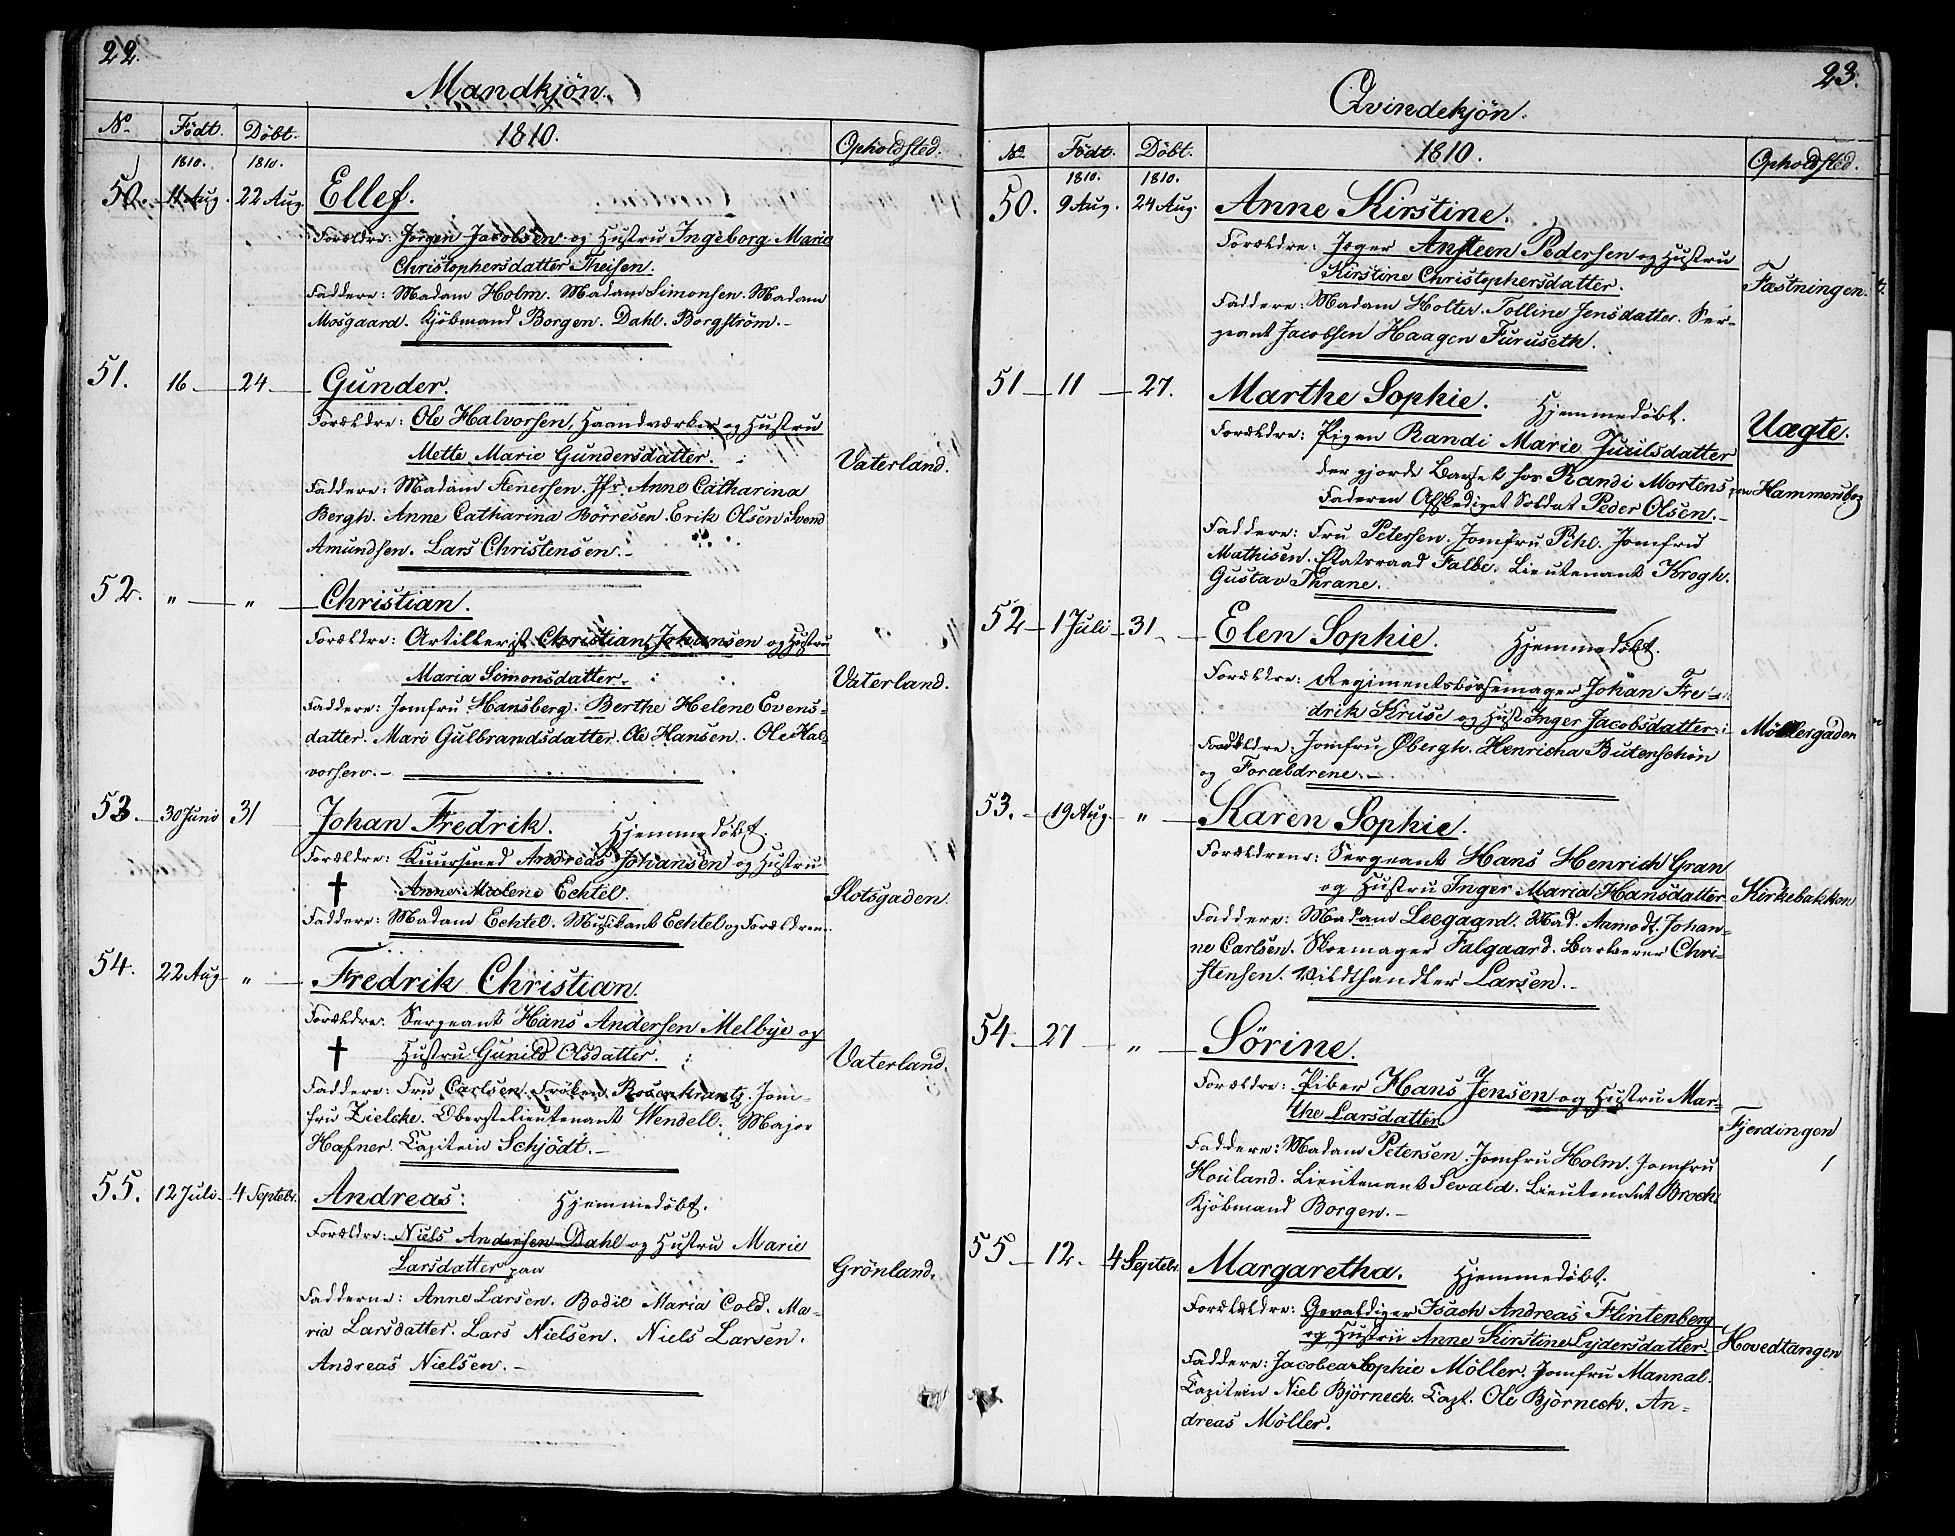 22.
Mandkjön.
No Födt. Döbt. 1810. Opholdsted.
1810. 1810.
50. 11 Aug. 22 Aug. Ellef.
Forældre: Jörgen Jacobsen og Hustru Ingeborg Marie
Christophersdatter Theisen.
Faddere: Madam Holm. Madam Simonsen. Madam
Mosgaard. Kjöbmand Borgen. Dahl. Borgström.
51. 16 24 Gunder.
Forældre: Ole Halvorsen, Haandværker og Hustru
Mette Marie Gundersdatter. Vaterland.
Faddere: Madam Stenersen. Jfr. Anne Catharina
Bergh. Anne Catharina Börresen. Erik Olsen Svend
Amundsen. Lars Christensen.
52. " " Christian.
Forældre: Artillerist Christian Johansen og Hustru
Maria Simonsdatter. Vaterland.
Faddere: Jomfru Hansberg. Berthe Helene Evens-
datter. Mari Gulbrandsdatter. Ole Hansen. Ole Hal-
vorsen.
53. 30 Juni 31 Johan Fredrik. Hjemmedöbt.
Forældre: Kuursmed Andreas Johansen og Hustru
† Anne Malene Echtel. Slotsgaden.
Faddere: Madam Echtel. Musikant Echtel og Forældrene.
54. 22 Aug " Fredrik Christian.
Forældre: Sergeant Hans Andersen Melbye og
† Hustru Gunild Olsdatter. Vaterland.
Faddere: Fru Carlsen. Fröken Rosenkrantz. Jom-
fru Zielcke. Oberstelieutenant Wendell. Major
Hafner. Capitein Schjödt.
55. 12 Juli 4 Septebr. Andreas: Hjemmedöbt.
Forældre: Niels Andersen Dahl og Hustru Marie
Larsdatter paa Grönland.
Fadderne: Anne Larsen. Bodil Maria Cold. Ma-
ria Larsdatter. Lars Nielsen. Niels Larsen.
Andreas Nielsen.
23.
Qvindekjön.
No Födt. Döbt. 1810. Opholdsted.
1810. 1810.
50. 9 Aug. 24 Aug. Anne Kirstine.
Forældre: Jæger Ansteen Pedersen og Hustru
Kirstine Christophersdatter. Fæstningen.
Faddere: Madam Holter. Tolline Jensdatter. Ser-
geant Jacobsen Haagen Furuseth.
51 11 27. Marthe Sophie. Hjemmedöbt.
Uægte.
Forældre: Pigen Randi Marie Juulsdatter
der gjorde Barsel hos Randi Mortens paa Hammersborg
Faderen Afskediget Soldat Peder Olsen.
Faddere: Fru Petersen. Jomfru Pihl. Jomfru
Mathisen. Etatsraad Falbe. Lieutenant Krogh.
Gustav Thrane.
52 1 Juli 31 Elen Sophie. Hjemmedöbt.
Forældre: Regimentsbössemager Johan Fre-
drik Kruse og Hust Inger Jacobsdatter i Möllergaden
Forældre: Jomfru Öbergh. Henricha Butenschön
og Forældrene.
53. 19 Aug. " Karen Sophie.
Forældrene: Sergeant Hans Henrich Gran
og Hustru Inger Maria Hansdatter Kirkebakken
Faddere: Madam Leegaard. Mad. Aamodt. Johan-
ne Carlsen. Skomager Falgaard. Barberer Chri-
stensen. Vildthandler Larsen.
54. 27 " Sörine.
Forældre: Piber Hans Jensen og Hustru Mar-
the Larsdatter Fjerdingen
Faddere: Madam Petersen. Jomfru Holm. Jomfru
Houland. Lieutenant Sevald. Lieutenant Broch.
Kjöbmand Borgen.
55 12. 4 Septebr. Margaretha. Hjemmedöbt.
Forældre: Gevaldiger Isach Andreas Flintenberg
og Hustru Anne Kirstine Lydersdatter Hovedtangen
Faddere: Jacobea Sophie Möller. Jomfru Mannal.
Capitein Niel Björneck. Capt. Ole Björneck. An-
dreas Möller.